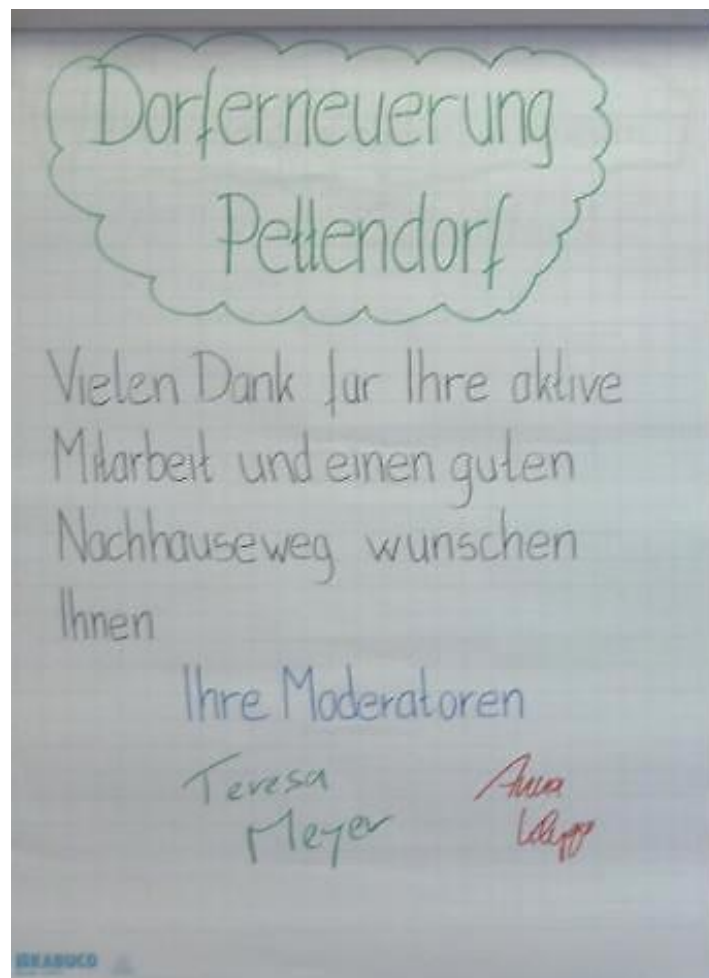 Dorferneuerung
Pettendorf
Vielen Dank für Ihre aktive
Mitarbeit und einen guten
Nachhauseweg wünschen
Ihnen
Ihre Moderatoren
Teresa
Meyer
Anna